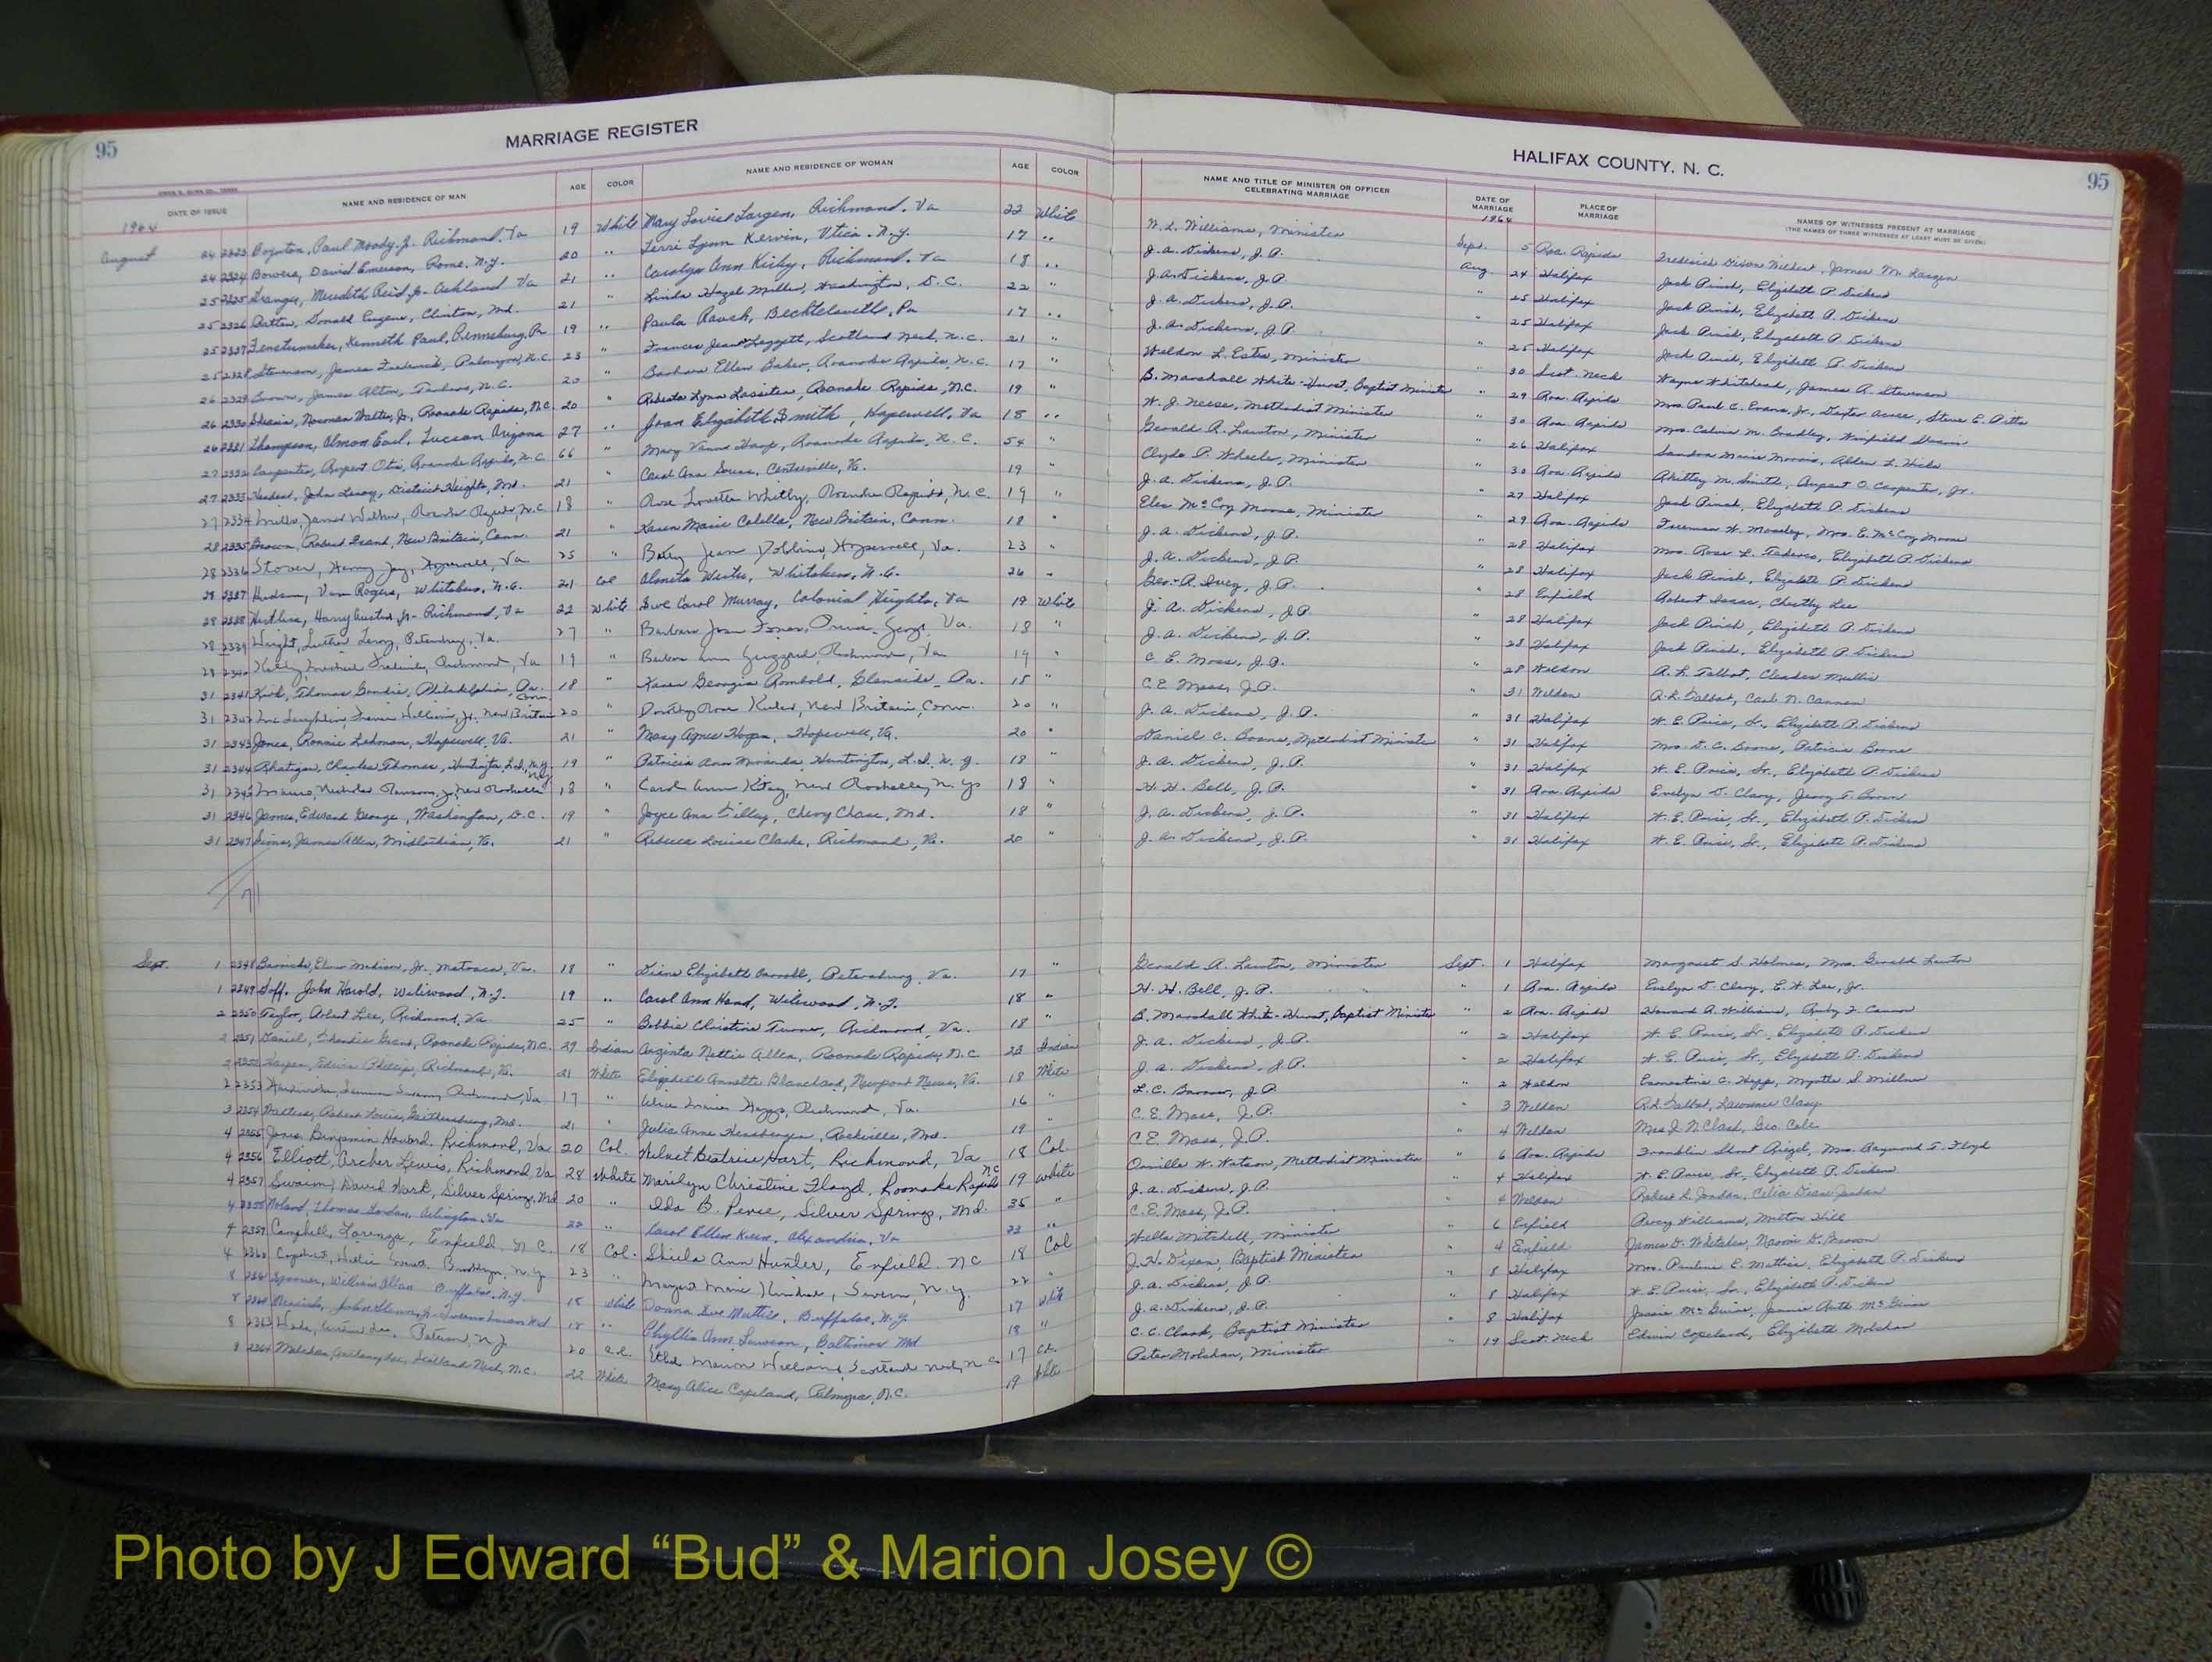 95
MARRIAGE REGISTER
HALIFAX COUNTY, N. C.
95
DATE OF ISSUE NAME AND RESIDENCE OF MAN AGE COLOR NAME AND RESIDENCE OF WOMAN AGE COLOR NAME AND TITLE OF MINISTER OR OFFICER CELEBRATING MARRIAGE DATE OF MARRIAGE PLACE OF MARRIAGE NAMES OF WITNESSES PRESENT AT MARRIAGE (THE NAMES OF THREE WITNESSES AT LEAST MUST BE GIVEN)
1964 1964
August 24 2323 Boynton, Paul Moody, Jr. Richmond, Va 19 White Mary Largen, Richmond, Va 22 White W. L. Williams, Minister Sept. 5 Roa. Rapids James M. Largen
24 2324 Bowers, David Emerson, Rome, N.Y. 20 " Terri Lynn Kervin, Utica, N.Y. 17 " J. A. Dickens, J. P. Aug 24 Halifax Jack Pinch, Elizabeth P. Dickens
25 2325 Granger, Meredith Reid, Jr. Oakland Va 21 " Carolyn Ann Kirby, Richmond, Va 18 " J. A. Dickens, J. P. " 25 Halifax Jack Pinch, Elizabeth P. Dickens
25 2326 Donald Eugene, Clinton, Md. 21 " Linda Hazel Miller, Washington, D. C. 22 " J. A. Dickens, J. P. " 25 Halifax Jack Pinch, Elizabeth P. Dickens
25 2327 Fenstermaker, Kenneth Paul, Pa 19 " Paula Rauch, Bechtelsville, Pa 17 " J. A. Dickens, J. P. " 25 Halifax Jack Pinch, Elizabeth P. Dickens
25 2328 Stevenson, James Frederick, Palmyra, N.C. 23 " Frances Jean Leggett, Scotland Neck, N.C. 21 " Weldon L. Estes, Minister " 30 Scot. Neck Wayne Whitehead, James R. Stevenson
26 2329 Brown, James Alton, N.C. 20 " Barbara Ellen Baker, Roanoke Rapids, N.C. 17 " B. Marshall White-Hurst, Baptist Minister " 29 Roa. Rapids Mrs. Paul C. Evans, Jr., Steve E. Pitts
26 2330 Norman Walter, Jr., Roanoke Rapids, N.C. 20 " Roberta Lynn Lassiter, Roanoke Rapids, N.C. 19 " W. J. Neese, Methodist Minister " 30 Roa. Rapids Mrs. Calvin M. Bradley, Winfield
26 2331 Thompson, Almon Earl, Tucson Arizona 27 " Jean Elizabeth Smith, Hopewell, Va 18 " Gerald A. Lawton, Minister " 26 Halifax Sandra Marie Morris, Alden L. Hicks
27 2332 Carpenter, Rupert Otis, Roanoke Rapids, N.C. 66 " Mary Roanoke Rapids, N.C. 54 " Clyde P. Wheeler, Minister " 30 Roa. Rapids M. Smith, Rupert O. Carpenter, Jr.
27 2333 John Leroy, District Heights, Md. 21 " Carol Ann Centreville, Va. 19 " J. A. Dickens, J. P. " 27 Halifax Jack Pinch, Elizabeth P. Dickens
27 2334 Mills, James Roanoke Rapids, N.C. 18 " Rose Whitby, Roanoke Rapids, N.C. 19 " Elee McCoy Moore, Minister " 29 Roa. Rapids Freeman W. Moseley, Mrs. E. McCoy Moore
28 2335 Brown, Robert New Britain, Conn. 21 " Karen Marie Colella, New Britain, Conn. 18 " J. A. Dickens, J. P. " 28 Halifax Mrs. Rose L. Elizabeth P. Dickens
28 2336 Stover, Henry Jay, Hopewell, Va 25 " Betty Jean Dobbins, Hopewell, Va. 23 " J. A. Dickens, J. P. " 28 Halifax Jack Pinch, Elizabeth P. Dickens
28 2337 Hudson, Van Rogers, Whitakers, N.C. 21 Col Whitakers, N.C. 26 " Geo. R. J. P. " 28 Enfield Robert Chestley Lee
28 2338 Harry Austin, Jr. Richmond, Va 22 White Sue Carol Murray, Colonial Heights, Va 19 White J. A. Dickens, J. P. " 28 Halifax Jack Pinch, Elizabeth P. Dickens
28 2339 Wright, Luther Leroy, Petersburg, Va. 27 " Barbara Jean Prince George, Va. 18 " J. A. Dickens, J. P. " 28 Halifax Jack Pinch, Elizabeth P. Dickens
28 2340 Kelly, Michael Richmond, Va 19 " Ann Richmond, Va 19 " C. E. Moss, J. P. " 28 Weldon R. L. Talbot,
31 2341 Kirk, Thomas Philadelphia, Pa. 18 " Karen Georgia Rombold, Glenside, Pa. 18 " C. E. Moss, J. P. " 31 Weldon R. L. Talbot, Carl N. Cannon
31 2342 McLaughlin, William, Jr. New Britain Conn 20 " Dorothy Rose New Britain, Conn. 20 " J. A. Dickens, J. P. " 31 Halifax W. E. Price, Sr., Elizabeth P. Dickens
31 2343 Jones, Ronnie Lehman, Hopewell, Va. 21 " Mary Agnes Hogan, Hopewell, Va. 20 " Daniel C. Boone, Methodist Minister " 31 Halifax Mrs. D. C. Boone, Patricia Boone
31 2344 Rhatigan, Charles Thomas, Huntington, L.I., N.Y. 19 " Patricia Ann Miranda, Huntington, L.I., N.Y. 18 " J. A. Dickens, J. P. " 31 Halifax W. E. Price, Sr., Elizabeth P. Dickens
31 2345 Mauro, Nicholas New Rochelle N.Y. 18 " Carol Ann New Rochelle, N.Y. 18 " H. H. Bell, J. P. " 31 Roa. Rapids Evelyn D. Clary, Jerry T.
31 2346 James, Edward George, Washington, D.C. 19 " Joyce Ann Tilley, Chevy Chase, Md. 18 " J. A. Dickens, J. P. " 31 Halifax W. E. Price, Sr., Elizabeth P. Dickens
31 2347 Sims, James Allen, Midlothian, Va. 21 " Rebecca Louise Clarke, Richmond, Va. 20 " J. A. Dickens, J. P. " 31 Halifax W. E. Price, Sr., Elizabeth P. Dickens
71
Sept. 1 2348 Elmer Madison, Jr. Matoaca, Va. 18 " Diane Elizabeth Petersburg, Va. 17 " Gerald A. Lawton, Minister Sept. 1 Halifax Margaret S. Holmes, Mrs. Gerald Lawton
1 2349 Goff, John Harold, Wildwood, N.J. 19 " Carol Ann Hand, Wildwood, N.J. 18 " H. H. Bell, J. P. " 1 Roa. Rapids Evelyn D. Clary, E. W. Lee, Jr.
2 2350 Taylor, Robert Lee, Richmond, Va 25 " Bobbie Christine Turner, Richmond, Va. 18 " B. Marshall White-Hurst, Baptist Minister " 2 Roa. Rapids Howard R. Williams, Ruby F. Cannon
2 2351 Daniel, Grant, Roanoke Rapids, N.C. 29 Indian Nettie Allen, Roanoke Rapids, N.C. 23 Indian J. A. Dickens, J. P. " 2 Halifax W. E. Price, Sr., Elizabeth P. Dickens
2 2352 Harper, Edwin Phillip, Richmond, Va. 21 White Elizabeth Annette Blanchard, Newport News, Va. 18 White J. A. Dickens, J. P. " 2 Halifax W. E. Price, Sr., Elizabeth P. Dickens
2 2353 Richmond, Va 17 " Alice Marie Richmond, Va. 16 " L. C. J. P. " 2 Weldon Earnestine C. Myrtle S.
3 2354 Walters, Robert Louis, Gaithersburg, Md. 21 " Julia Anne Rockville, Md. 19 " C. E. Moss, J. P. " 3 Weldon R. L. Talbot, Lawrence Clary
4 2355 Jones, Benjamin Howard, Richmond, Va 20 Col. Beatrice Hart, Richmond, Va 18 Col. C. E. Moss, J. P. " 4 Weldon Mrs. J. N. Clark, Geo. Cole
4 2356 Elliott, Archer Lewis, Richmond, Va 28 White Marilyn Christine Floyd, Roanoke Rapids NC 19 white Orville W. Watson, Methodist Minister " 6 Roa. Rapids Franklin Mrs. Raymond T. Floyd
4 2357 Swaim, David Mark, Silver Spring, Md 20 " Ida B. Pence, Silver Springs, Md. 35 " J. A. Dickens, J. P. " 4 Halifax W. E. Price, Sr., Elizabeth P. Dickens
4 2358 Noland, Thomas Jordan, Arlington, Va 22 " Carol Ellen Keen, Alexandria, Va 23 " C. E. Moss, J. P. " 4 Weldon Robert L. Jordan, Celia Diane Jordan
4 2359 Campbell, Lorenza, Enfield, N.C. 18 Col. Shiela Ann Hunter, Enfield, NC 18 Col Mitchell, Minister " 6 Enfield Percy Williams, Milton Hill
4 2360 Brooklyn, N.Y. 23 " Margaret Marie N.Y. 22 " J. H. Dixon, Baptist Minister " 4 Enfield James D. Whitaker, Naomi D.
8 2361 William Allan Buffalo, N.Y. 18 White Donna Sue Buffalo, N.Y. 17 White J. A. Dickens, J. P. " 8 Halifax Mrs. Pauline E. Mattie, Elizabeth P. Dickens
8 2362 John Glenn, Jr. Md 18 " Phyllis Ann Lawson, Baltimore Md 18 " J. A. Dickens, J. P. " 8 Halifax W. E. Price, Sr., Elizabeth P. Dickens
8 2363 Wade, Lee, N.J. 20 Col. Ethel Marion Williams, Scotland Neck, N.C. 17 Col. C. C. Clark, Baptist Minister " 8 Halifax Jessie McGuire, Ruth McGuire
9 2364 Molchan, Anthony Scotland Neck, N.C. 22 White Mary Alice Copeland, Palmyra, N.C. 19 White Peter Molchan, Minister " 19 Scot. Neck Edwin Copeland, Elizabeth Molchan
Photo by J Edward “Bud” & Marion Josey ©